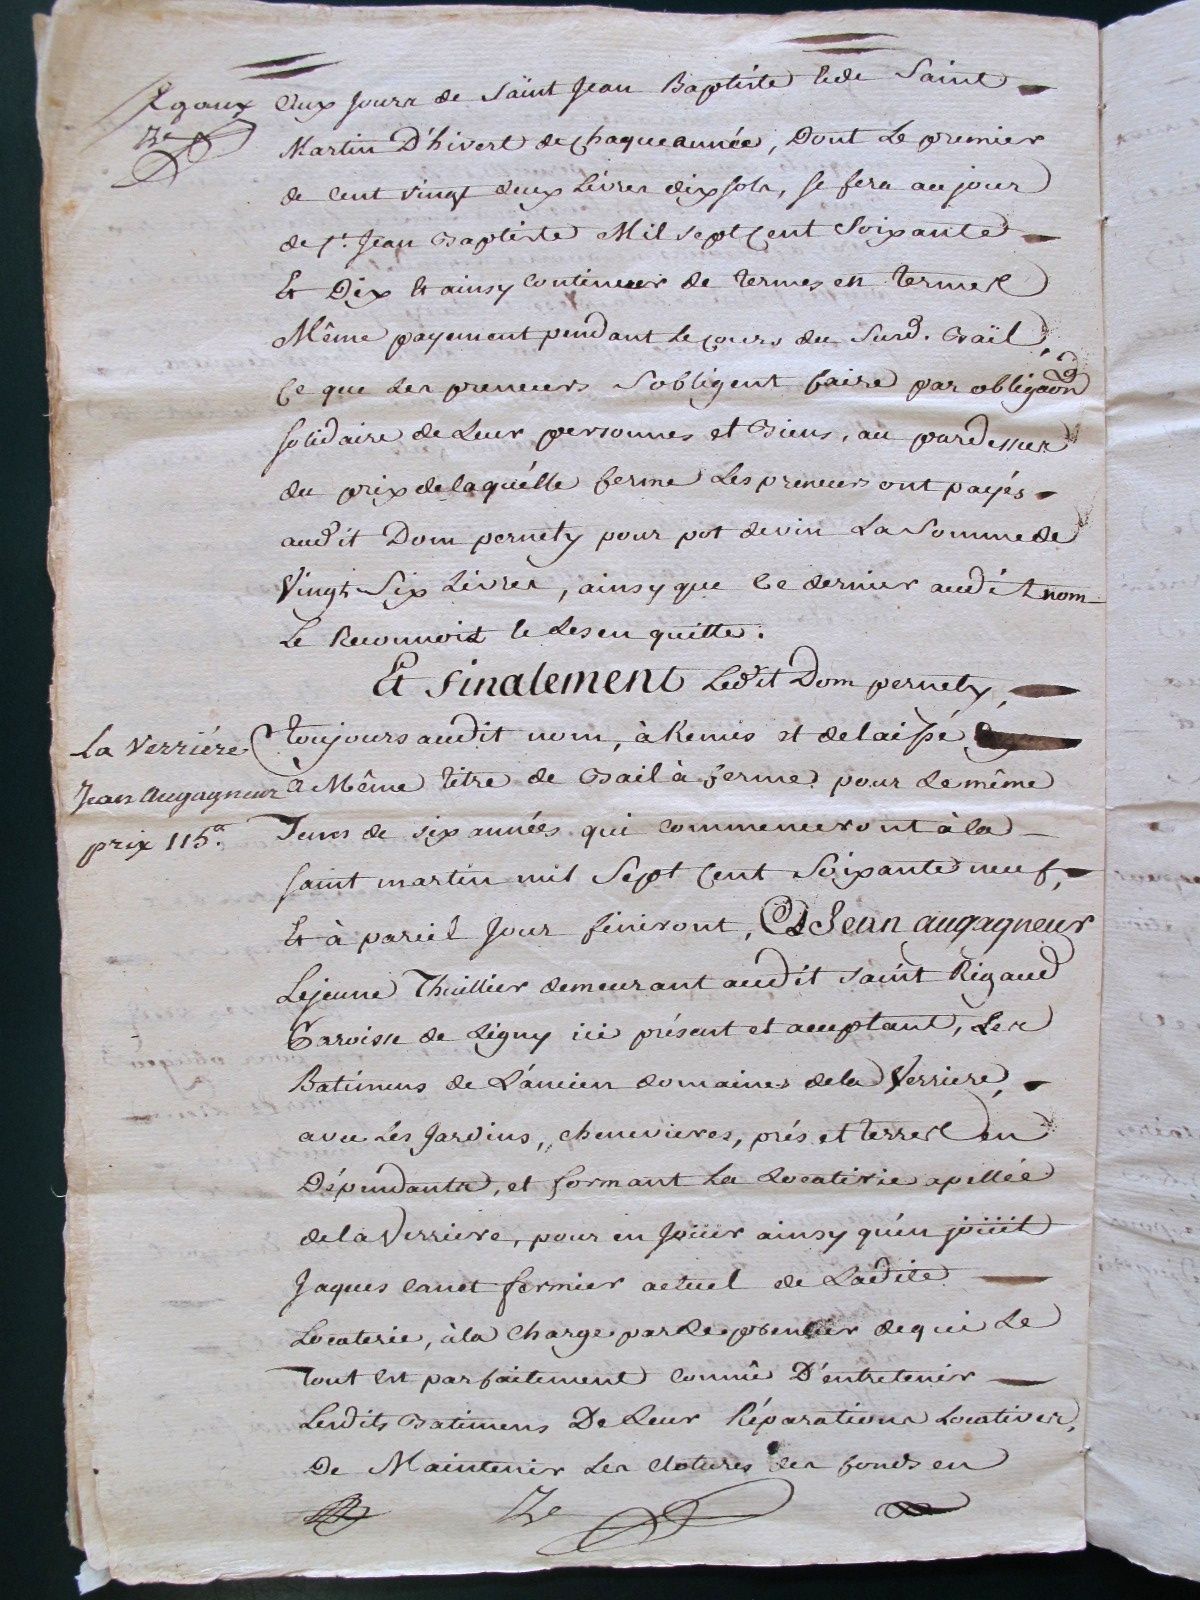 Egaux
aux Jours de Saint Jean Baptiste et de Saint
Martin D'hivert de chaque année, Dont Le premier
de cent vingt deux Livres dix sols, se fera au jour
de st. Jean Baptiste Mil sept cent Soixante
Et Dix et ainsy continuer de termes en termes
Même payement pendant le cours du Susd. Bail,
Ce que Les preneurs s'obligent faire par obligaon
solidaire de Leur personnes et Biens, au pardessus
du prix de laquélle ferme Les preneurs ont payés
audit Dom pernety pour pot de vin La Somme de
Vingt Six Livres, ainsy que ce dernier audit nom
Le Reconnoit et Les en quitte.
Et Finalement Ledit Dom pernety,
La Verriére
Jean Augagneur
prix 115.
toujours audit nom, à Remis et delaissé
à Même titre de Bail à ferme pour Le même
Tems de six années qui commenceront à la
saint martin mil Sept Cent Soixante neuf,
Et à pareil Jour finiront, A Jean augagneur
Lejeune Thuillier demeurant audit saint Rigaud
Paroisse de Ligny ici présent et acceptant, Les
Batimens de L'ancien domaine de la Verriere,
avec Les Jardins, chenevieres, prés et terres en
Dépendants, et formant La Locaterie apellée
de la Verriere, pour en Joüir ainsy qu'en joüit
Jaques Canet fermier actuel de Ladite
Locaterie, à la Charge par Le preneur de qui Le
Tout Est parfaitement connû D'entretenir
Lesdits Batimens De Leur Réparations Locatives,
De Maintenir Les Clotures des fonds en